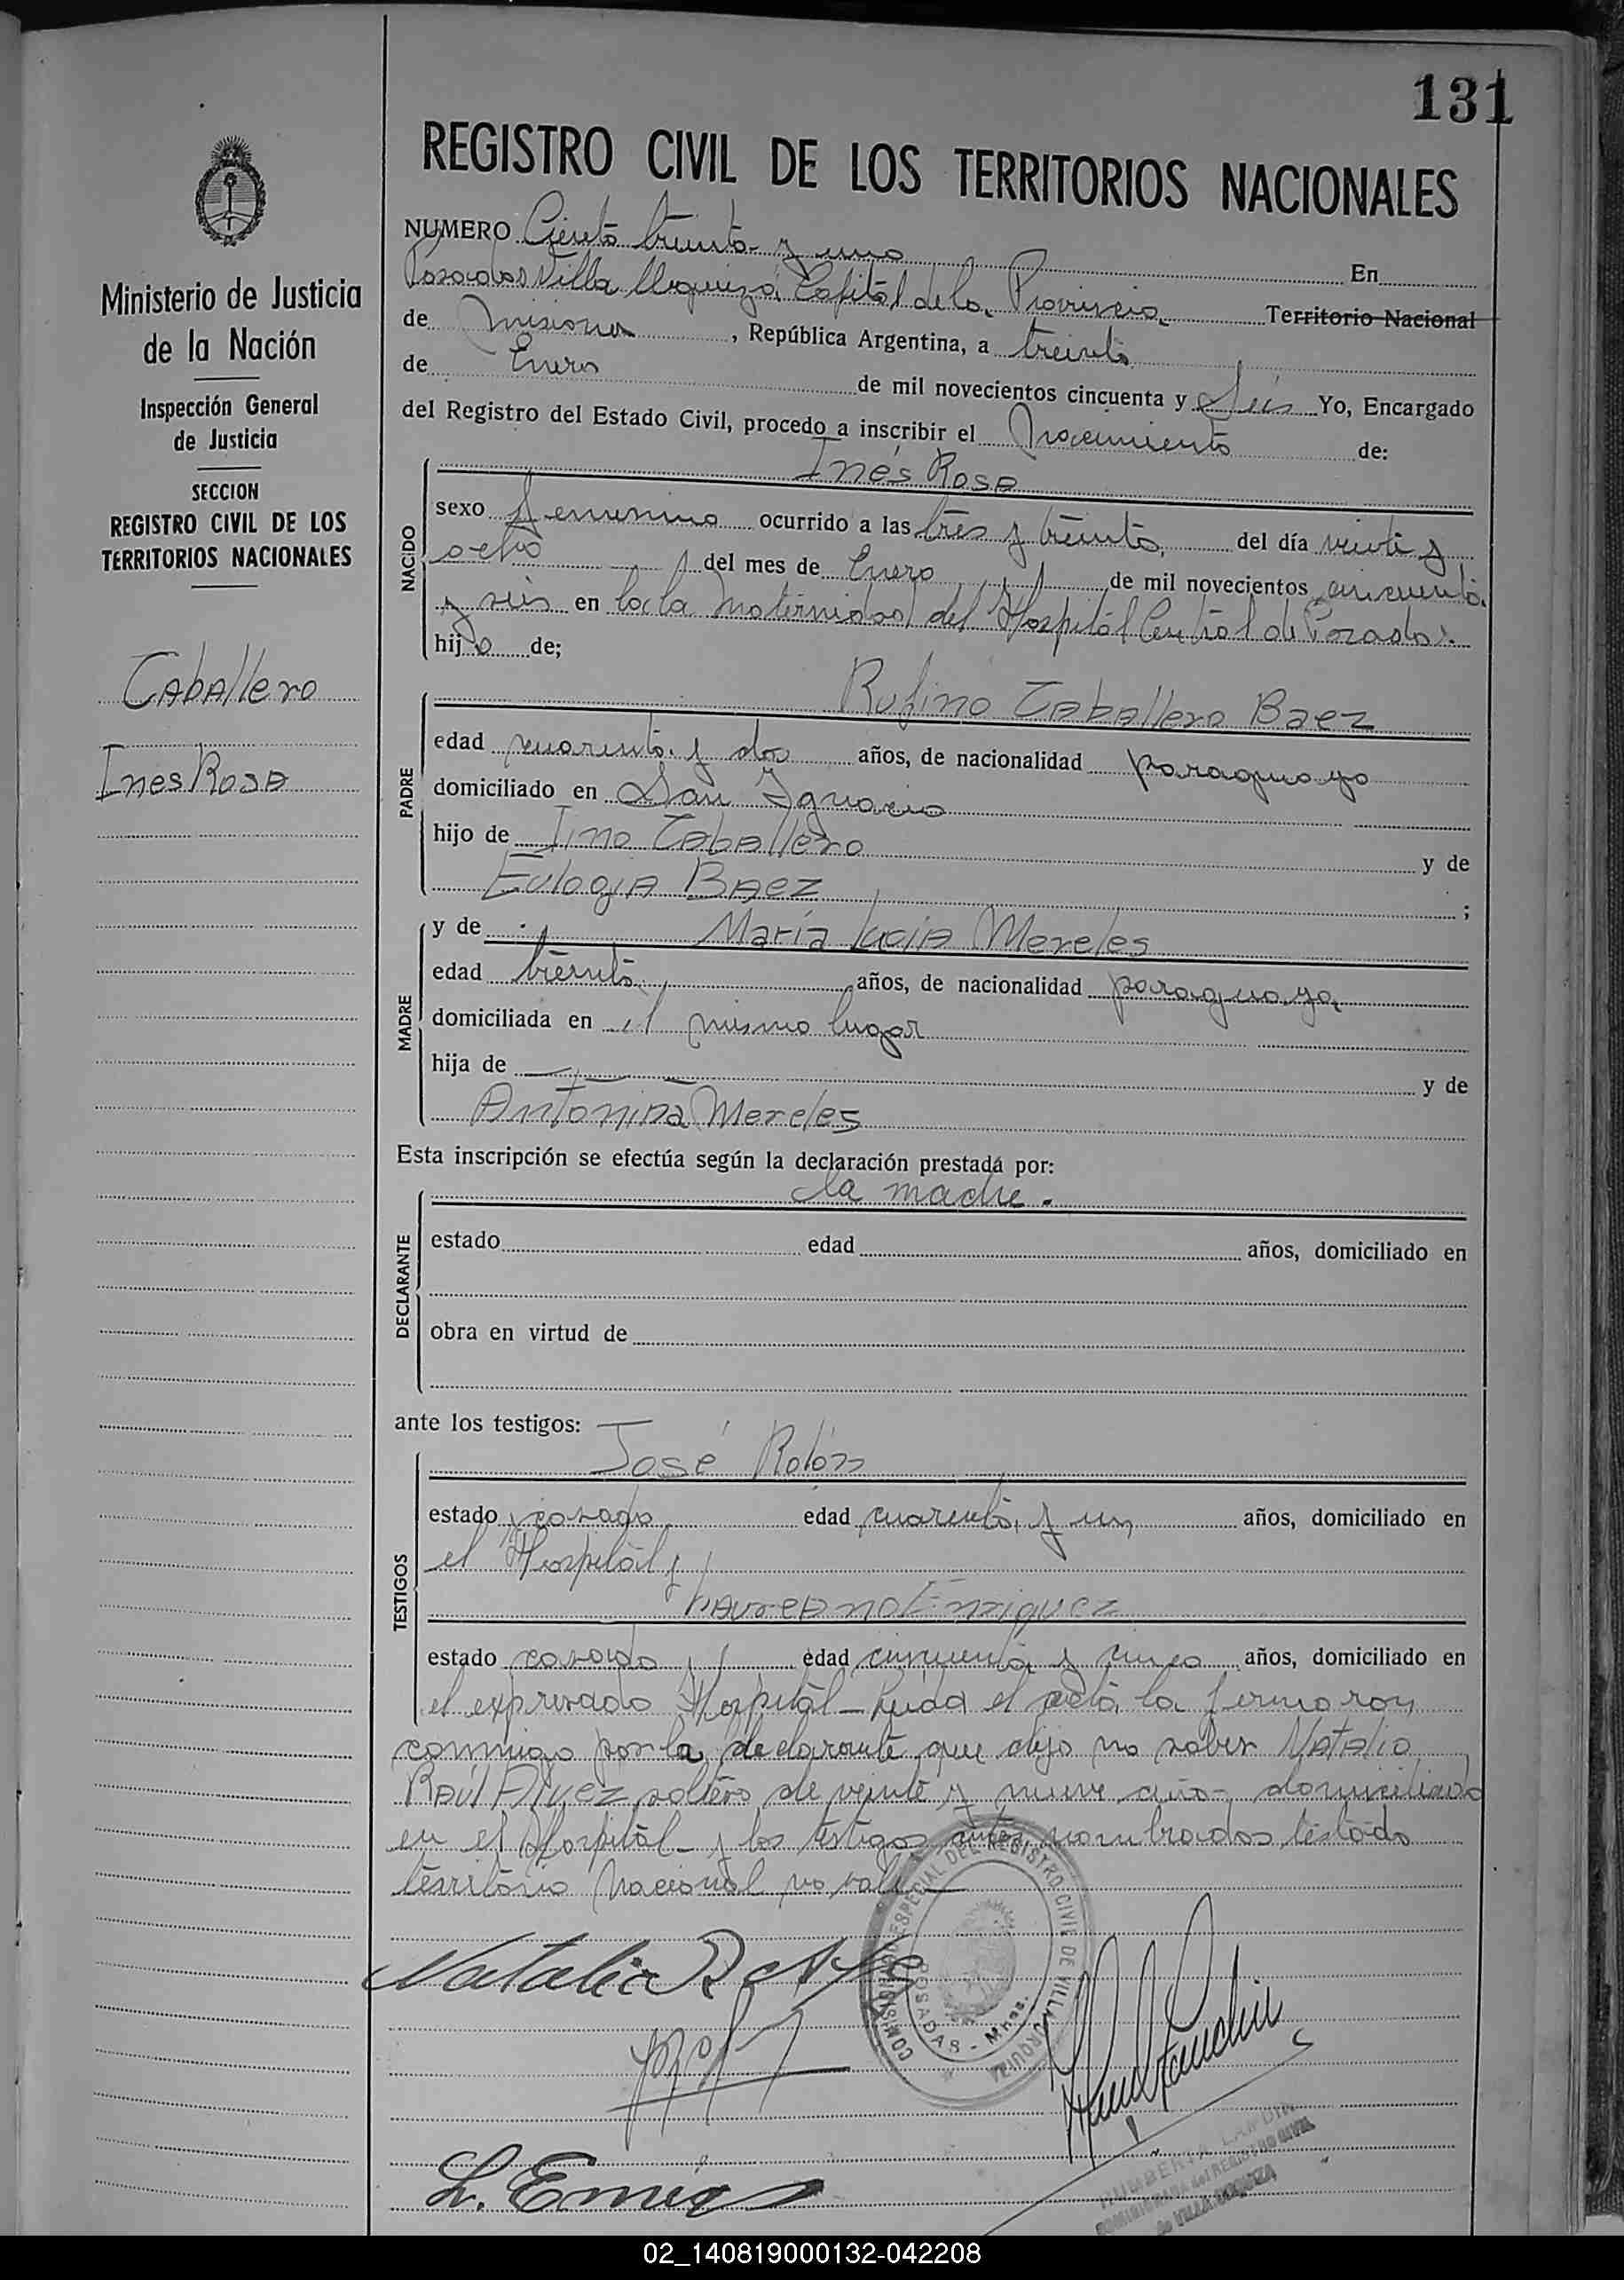 131
REGISTRO CIVIL DE LOS TERRITORIOS NACIONALES
Ministerio de Justicia
de la Nación
Inspección General
de Justicia
SECCION
REGISTRO CIVIL DE LOS
TERRITORIOS NACIONALES
Caballero
Ines Rosa
NUMERO Ciento treinta y uno En
Posadas Villa Urquiza Capital de la Provincia Territorio Nacional
de Misiones, República Argentina, a treinta
de Enero de mil novecientos cincuenta y Seis Yo, Encargado
del Registro del Estado Civil, procedo a inscribir el Nacimiento de:
NACIDO
Inés Rosa
sexo femenino ocurrido a las tres y treinta del día veinti y
ocho del mes de Enero de mil novecientos cincuenta
y seis en la Maternidad del Hospital Central de Posadas.
hija de;
PADRE
Rufino Caballero Baez
edad cuarenta y dos años, de nacionalidad paraguayo
domiciliado en San Ignacio
hijo de Caballero y de
Eulogia Baez ;
MADRE
y de María Lucia Mereles
edad treinta años, de nacionalidad paraguaya
domiciliada en el mismo lugar
hija de — y de
Antonina Mereles
Esta inscripción se efectúa según la declaración prestada por:
DECLARANTE
la madre.
estado edad años, domiciliado en
obra en virtud de
ante los testigos:
TESTIGOS
José Rolón
estado casado edad cuarenta y un años, domiciliado en
el Hospital y
Laureano Enriquez
estado casado edad cincuenta y cinco años, domiciliado en
el expresado Hospital - Leida el acta la firmaron
conmigo por la declarante que dijo no saber Natalio
Raúl Alvez soltero de veinte y nueve años domiciliado
en el Hospital - y los testigos antes nombrados testado
territorio Nacional no vale
Natalio R Alvez
COMISION ESPECIAL DEL REGISTRO CIVIL DE VILLA URQUIZA
POSADAS - Mnes.
L. Enriq
HUMBERTO LANDIN
del REGISTRO CIVIL
de VILLA URQUIZA
02_140819000132-042208